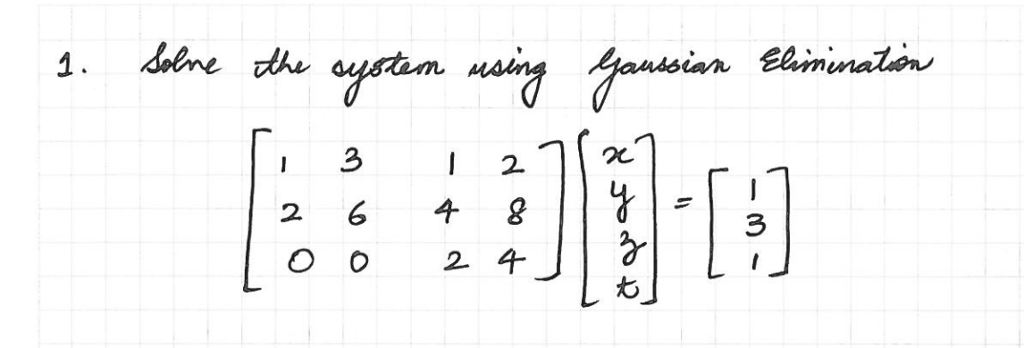 1. Solve the system using Gaussian Elimination
[1 3 1 2] [x] [1]
[2 6 4 8] [y] = [3]
[0 0 2 4] [z] [1]
[t]